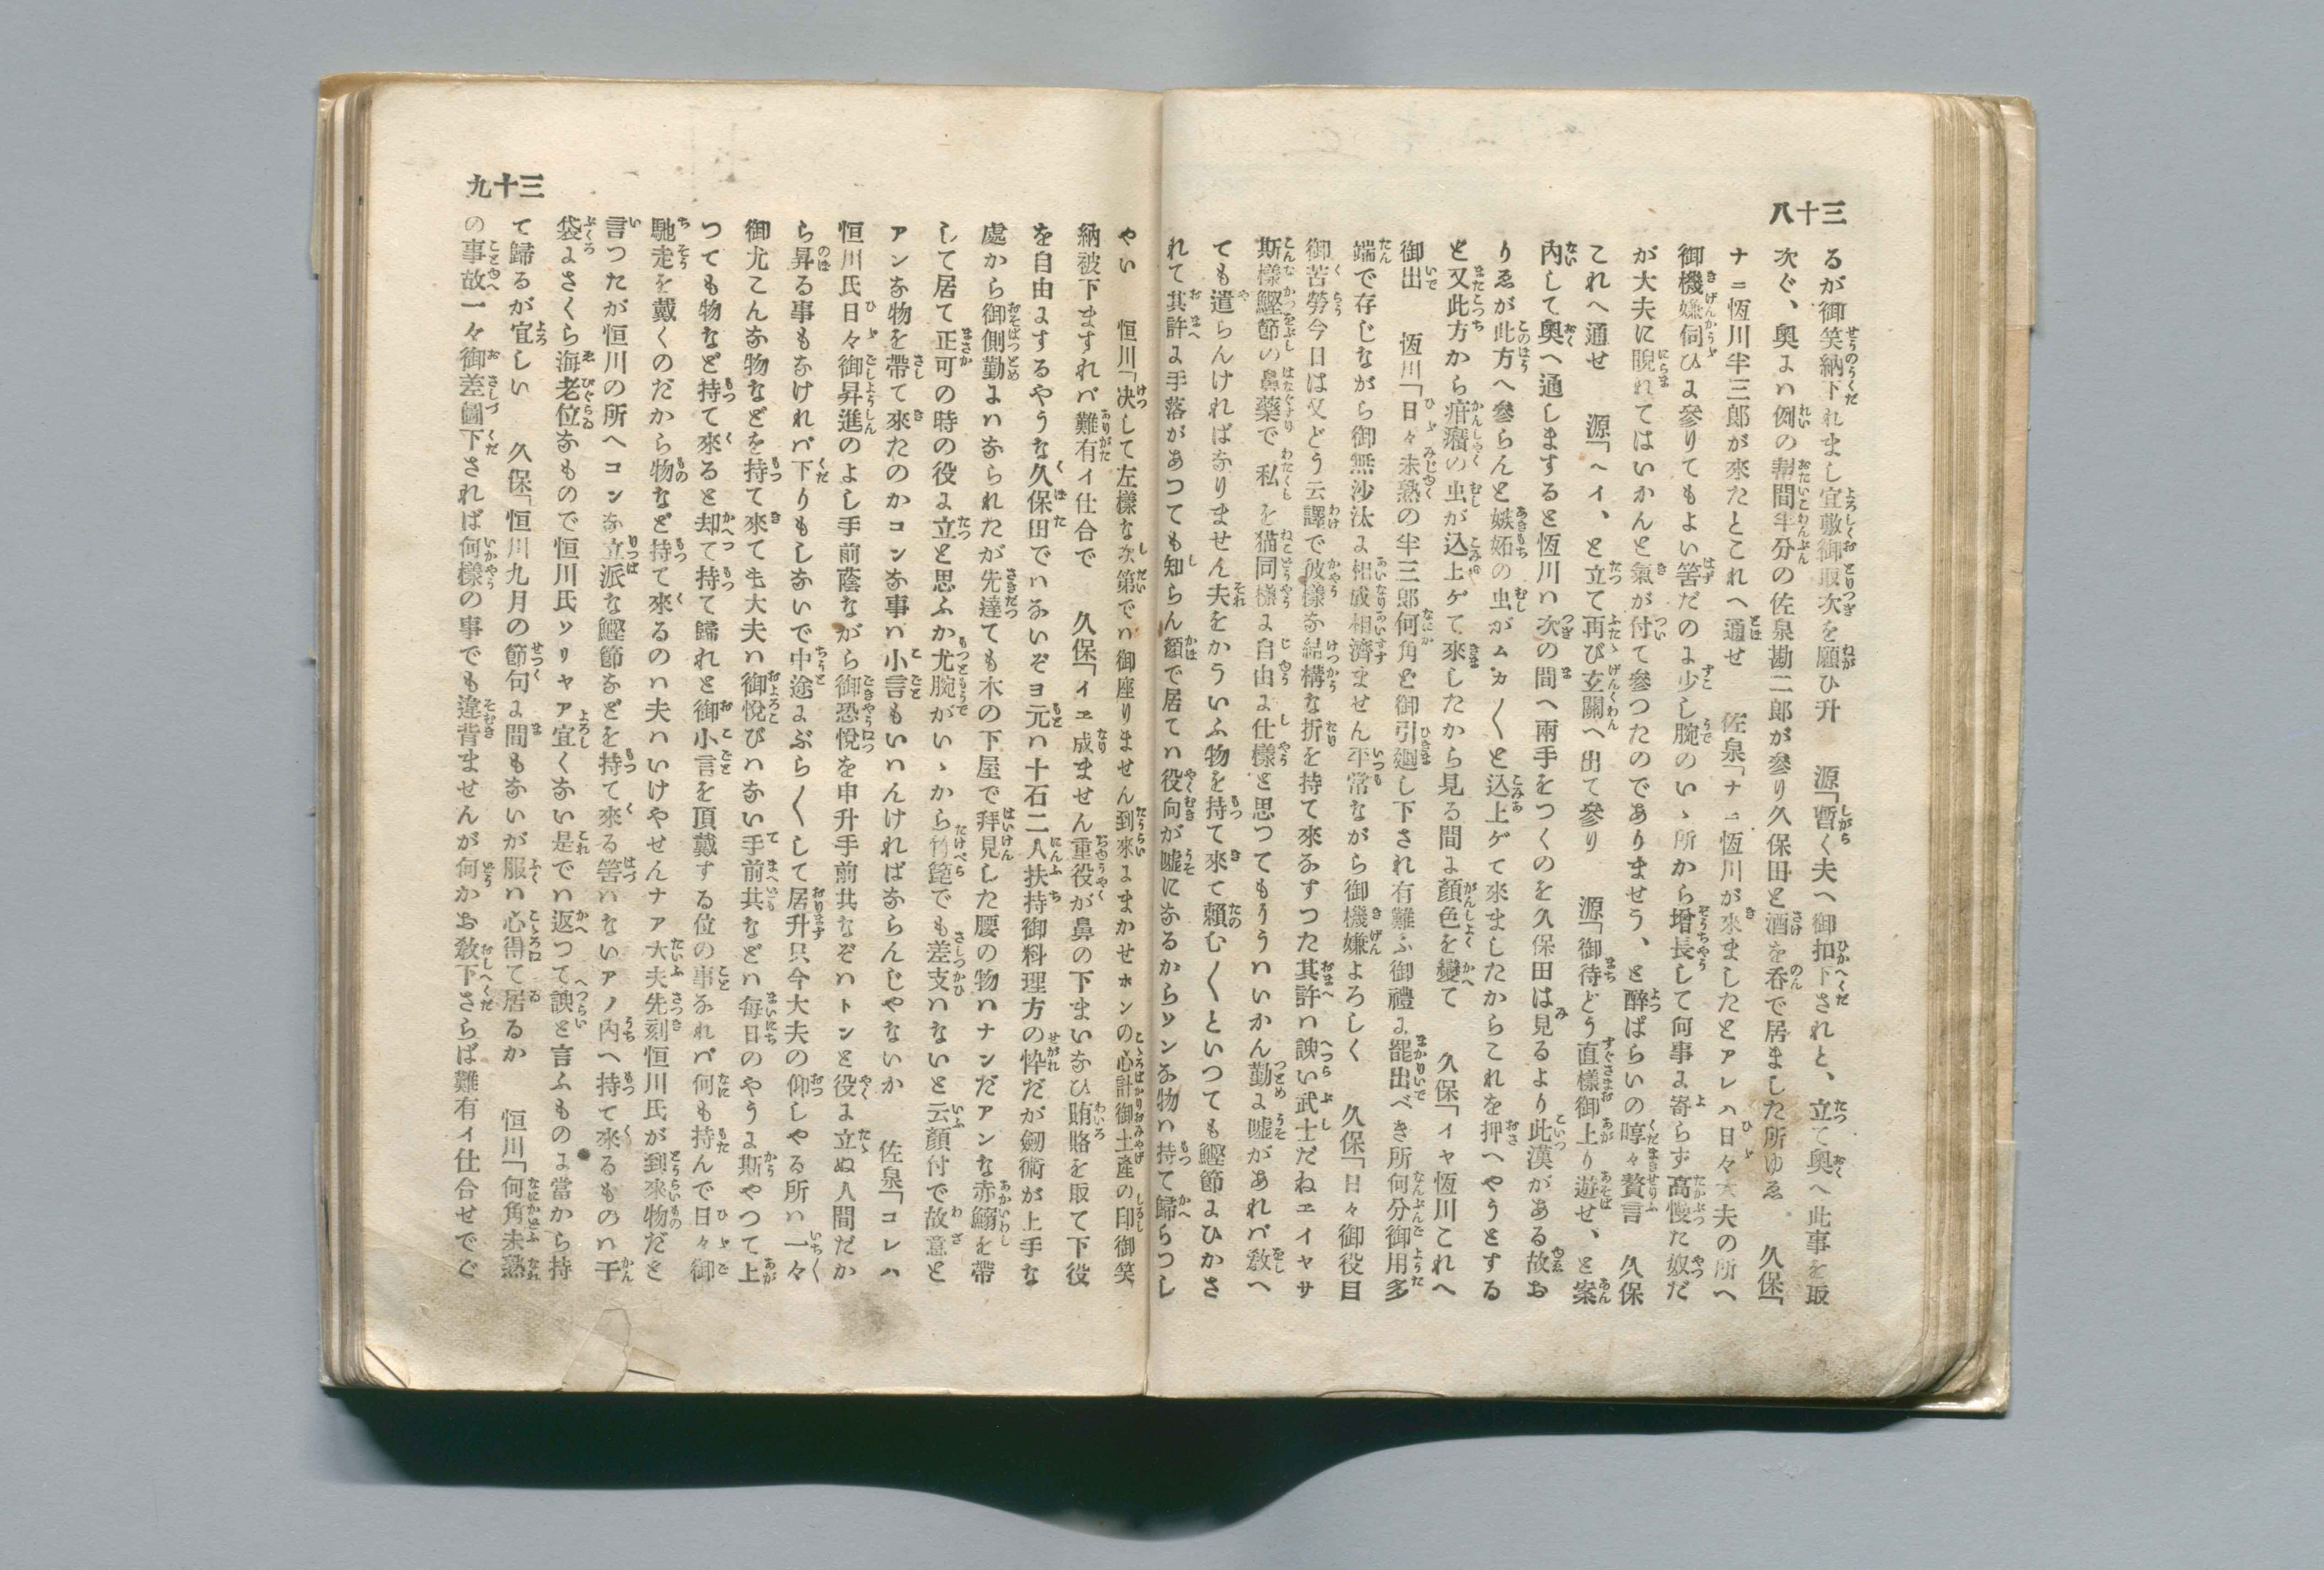 三十八
るが御笑納下れまし宜敷御取次を願ひ升　源「暫く夫へ御扣下されと、立て奥へ此事を取
次ぐ、奥はハ例の幇間半分の佐泉勘二郎が參り久保田と酒を呑で居ました所ゆゑ　久保「
ナニ恆川半三郎が來たとこれへ通せ　佐泉「ナニ恆川が來ましたとアレハ日々大夫の所へ
御機嫌伺ひに參りてもよい筈だのに少し腕のいゝ所から增長して何事に寄らず高慢た奴だ
が大夫に睨れてはいかんと氣が付て參つたのでありませう、と醉ぱらいの嘚々贅言　久保
これへ通せ　源「ヘイ、と立て再び玄關へ出て參り　源「御待どう直樣御上り遊せ、と案
內して奧へ通しますると恆川ハ次の間へ兩手をつくのを久保田は見るより此漢がある故お
りゑが此方へ參らんと嫉妬の虫がムカ〳〵と込上ゲて來ましたからこれを押へやうとする
と又此方から疳癪の虫が込上ゲて來したから見る間に顏色を變て　久保「イヤ恆川これへ
御出　恆川「日々未熟の半三郎何角と御引廻し下され有難ふ御禮に罷出べき所何分御用多
端で存じながら御無沙汰に相成相濟ません平常ながら御機嫌よろしく　久保「日々御役目
御苦勞今日は又どう云譯で彼樣な結構な折を持て來なすつた其許ハ諛い武士だねエイヤサ
斯樣鰹節の鼻藥で私を猫同樣に自由に仕樣と思つてもうういハいかん勤に噓があれバ敎へ
ても遣らんければなりません夫をかういふ物を持て來て賴む〳〵といつても鰹節にひかさ
れて其許に手落があつても知らん顏で居てハ役向が噓になるからソンな物ハ持て歸らつし
やい　恒川「決して左樣な次第でハ御座りません到來にまかせホンの心計御土產の印御笑
納被下ますれバ難有イ仕合で　久保「イエ成ません重役が鼻の下まいなひ賄賂を取て下役
を自由にするやうな久保田でハないぞヨ元ハ十石二人扶持御料理方の悴だが劒術が上手な
處から御側勤にハなられたが先達ても木の下屋で拜見した腰の物ハナンだアンな赤鰯を帶
して居て正可の時の役に立と思ふか尤腕がいゝから竹篦でも差支ハないと云顏付で故意と
アンな物を帶て來たのかコンな事ハ小言もいハんければならんじやないか　佐泉「コレハ
恒川氏日々御昇進のよし手前蔭ながら御恐悅を申升手前共なぞハトンと役に立ぬ人間だか
ら昇る事もなけれバ下りもしないで中途にぶら〳〵して居升只今大夫の仰しやる所ハ一々
御尤こんな物などを持て來ても大夫ハ御悅びハない手前共などハ每日のやうに斯やつて上
つても物など持て來ると却て持て歸れと御小言を頂戴する位の事なれバ何も持んで日々御
馳走を戴くのだから物など持て來るのハ夫ハいけやせんナア大夫先刻恒川氏が到來物だと
言つたが恒川の所へコンな立派な鰹節などを持て來る筈ハないアノ內へ持て來るものハ干
袋にさくら海老位なもので恒川氏ソリヤア宜くない是でハ返つて諛と言ふものに當から持
て歸るが宜しい　久保「恒川九月の節句に間もないが服ハ心得て居るか　恒川「何角未熟
の事故一々御差圖下されば何樣の事でも違背ませんが何かお敎下さらば難有イ仕合せでぐ
三十九